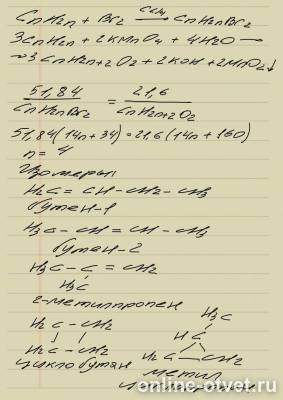 CnH2n + Br2 CCl4→ CnH2nBr2
3CnH2n + 2KMnO4 + 4H2O →
→ 3CnH2n+2O2 + 2KOH + 2MnO2↓
51,84 / CnH2nBr2 = 21,6 / CnH2n+2O2
51,84(14n+34) = 21,6(14n+160)
n = 4
Изомеры:
H2C = CH – CH2 – CH3
бутен-1
H3C – CH = CH – CH3
бутен-2
H3C – C = CH2
H3C
2-метилпропен
H3C
H2C – CH2
HC
H2C – CH2
H2C – CH2
циклобутан
метил
online-otvet.ru